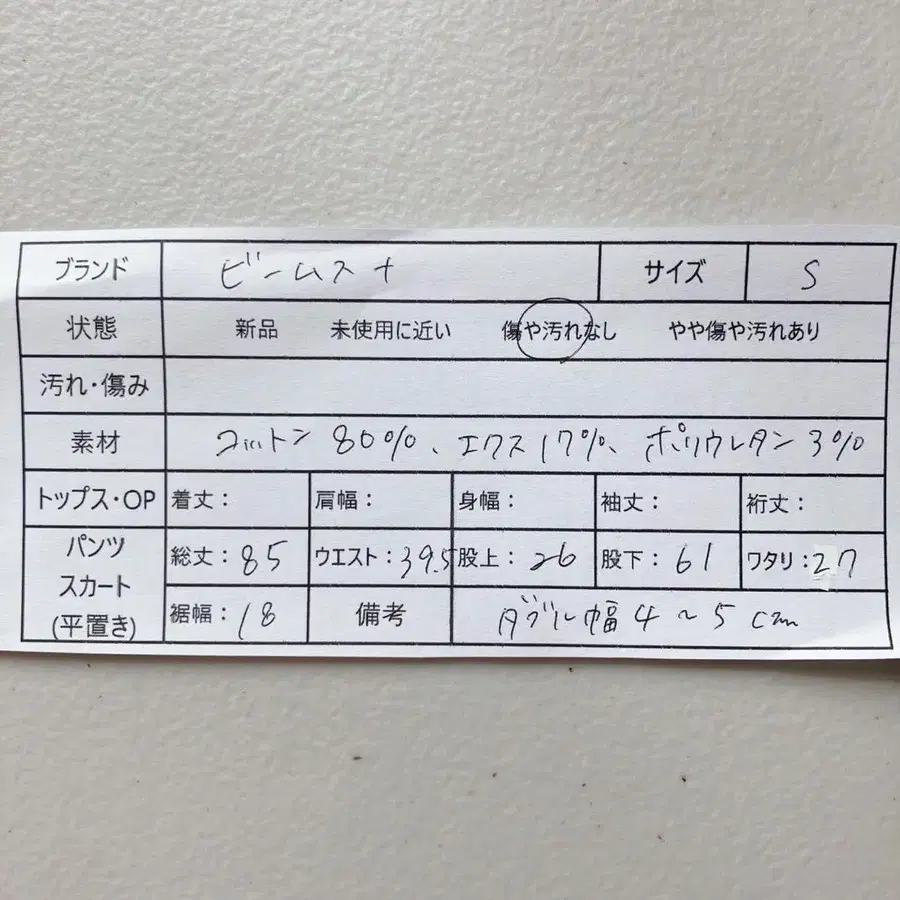 ブランド ビームス+ サイズ S
状態 新品 未使用に近い 傷や汚れなし やや傷や汚れあり
汚れ・傷み
素材 コットン 80%、エクス17%、ポリウレタン 3%
トップス・OP 着丈: 肩幅: 身幅: 袖丈: 裄丈:
パンツ スカート (平置き) 総丈:85 ウエスト:39.5 股上:26 股下:61 ワタリ:27
裾幅:18 備考 ダブル幅 4~5cm